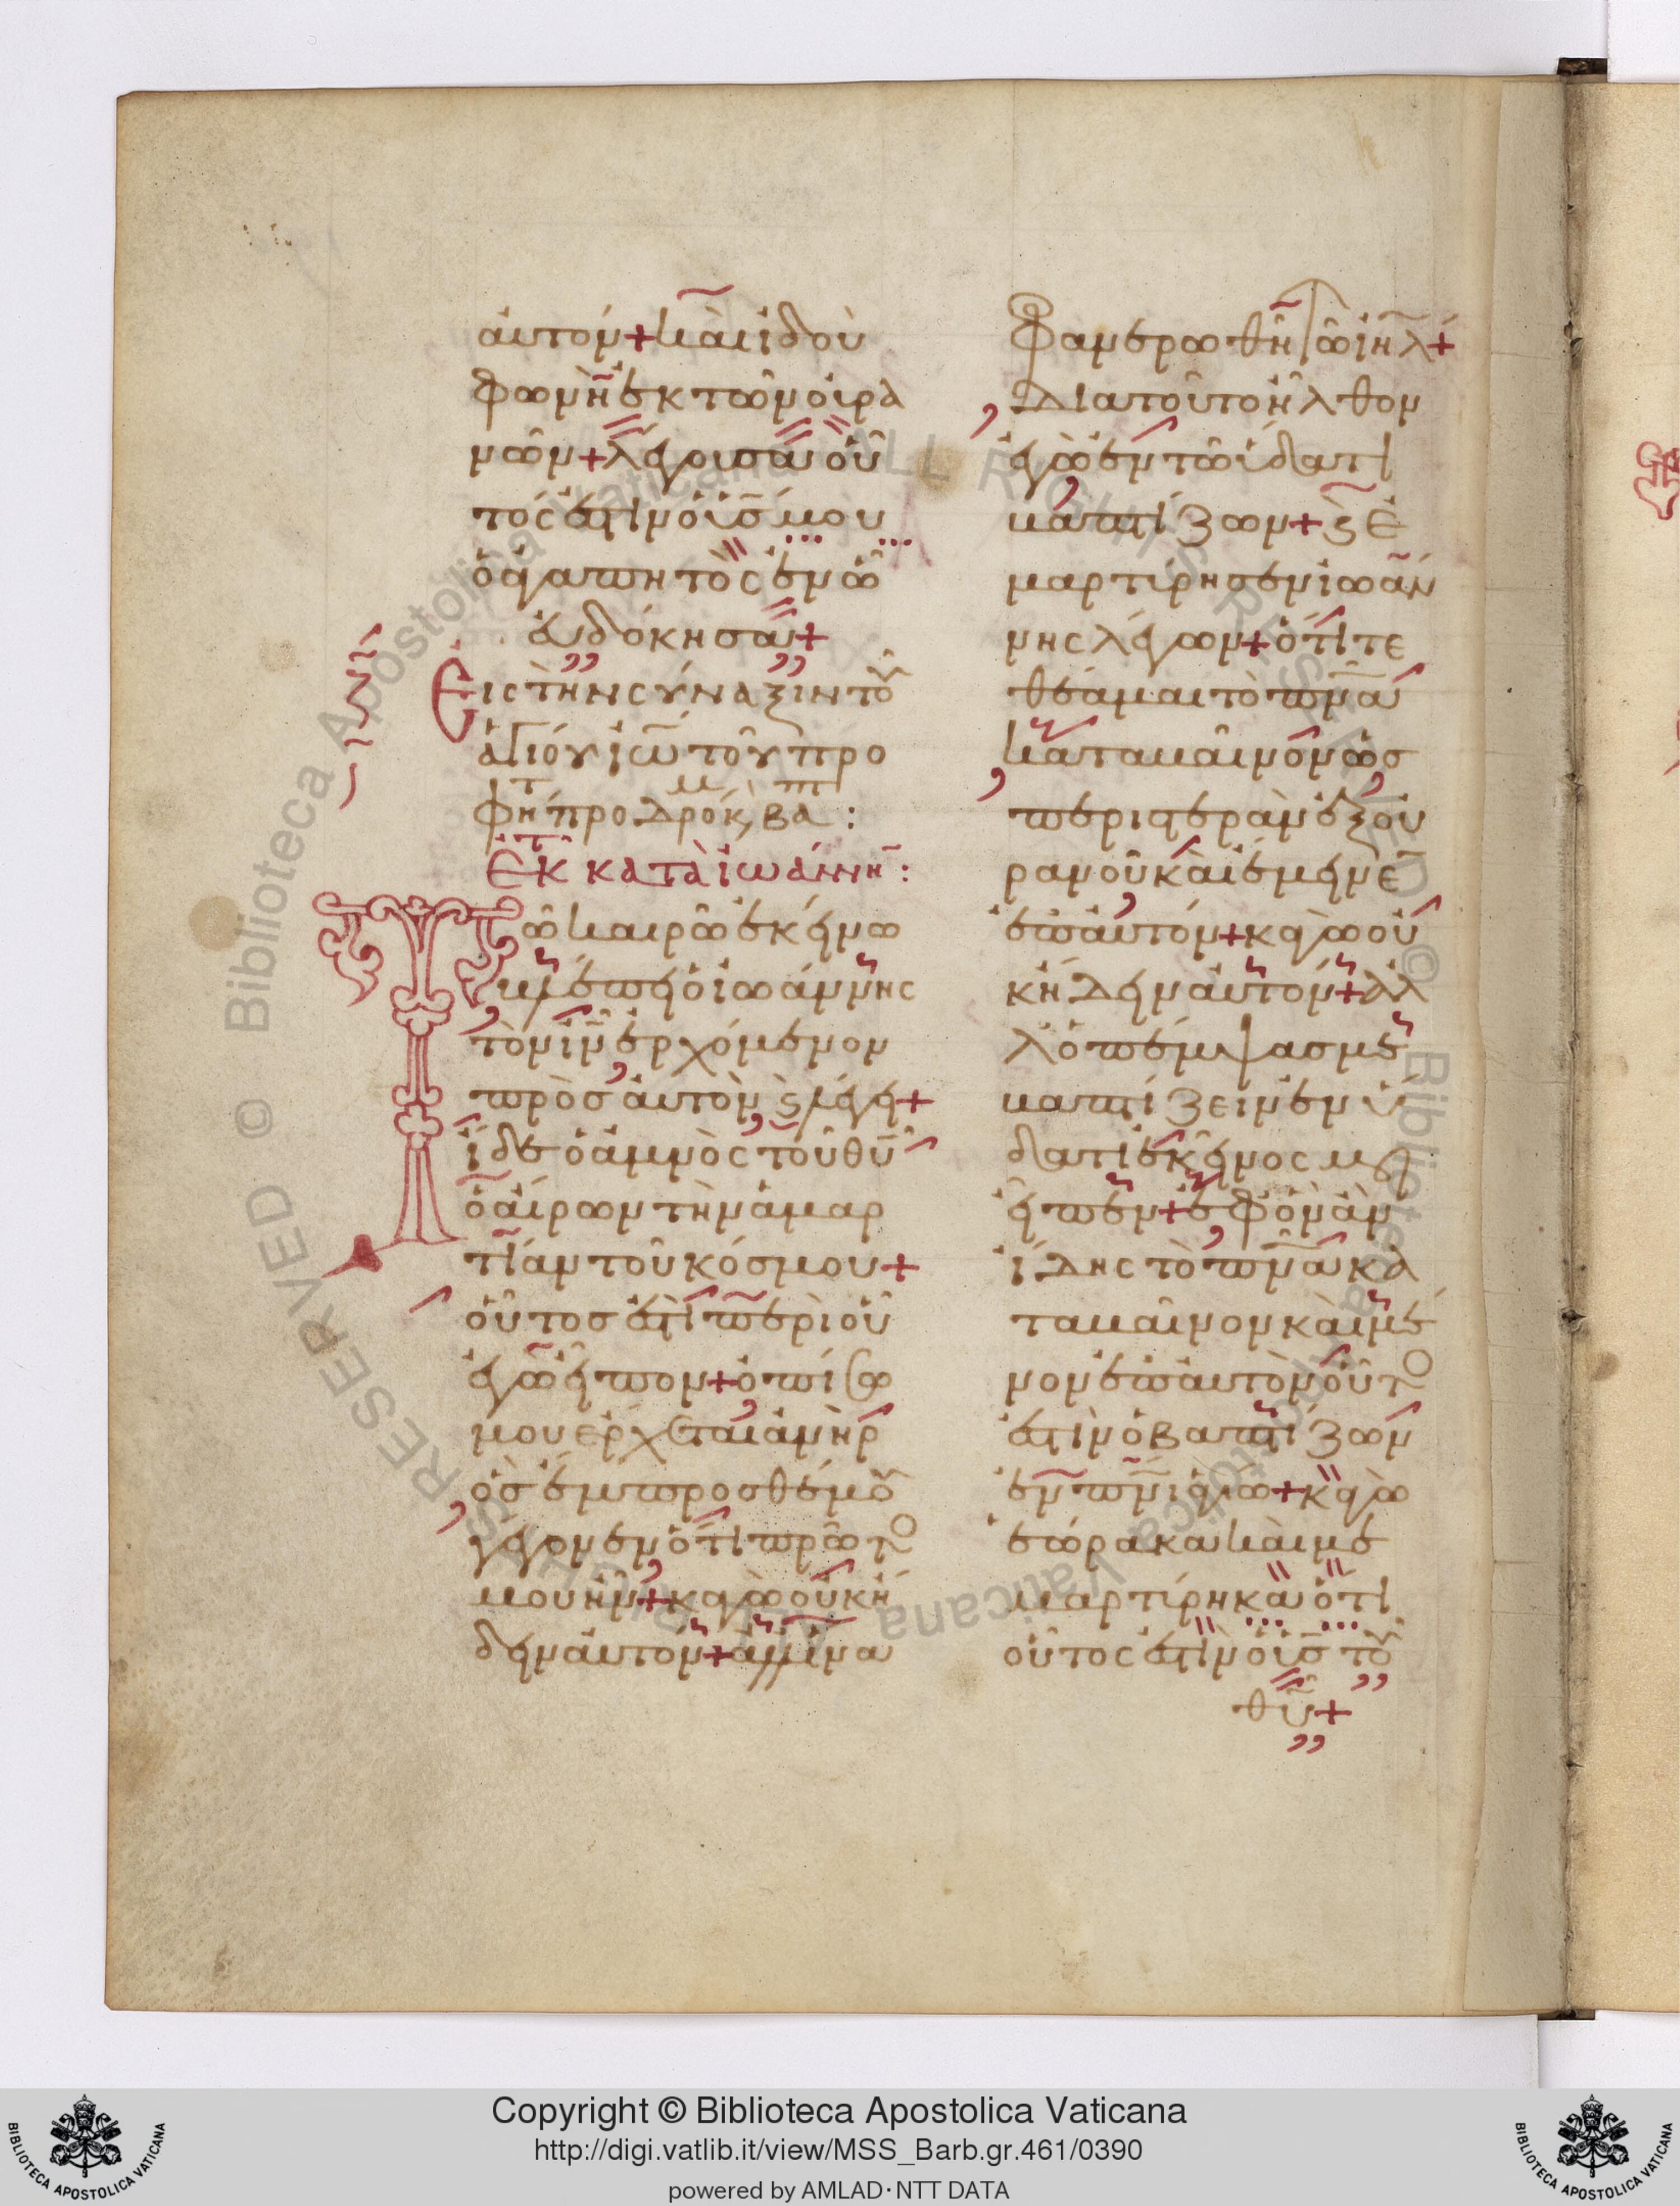 ἀυτον + καὶ ἰδοὺ
φωνὴ ἐκ τῶν οὐρα
νῶν + λέγουσα οὗ
τός ἐστιν ὁ υἱσ̄ μου
ὁ ἀγαπητὸς ἐν ὧ
ἐυδόκησα +
Εἰς τὴν σύναξιν τοῦ
ἁγίου ἰω̅ τοῦ προ
φητ προδρόμ κ, βαπ :
Ἐκ τ κατὰ ἰωάννη :
Τῶ καιρῶ ἐκείνω
βλέπει ὁ ἰωάννης
τὸν ἰν̅ ἐρχόμενον
πρὸσ ἀυτὸν ϗ λέγει +
ἴδε ὁ ἀμνὸς τοῦ θυ̅
ὁ αἴρων τὴν ἁμαρ
τίαν τοῦ κόσμου +
οὗτοσ ἐστὶ περὶ οὗ
ἐγὼ εἶπον + ὀπίσω
μου ἐρχεται ἀνὴρ
ὁσ ἔμπροσθέν μου
γέγονεν ὅτι πρῶτο
μου ἦν + καγὼ οὐκ ἤ
δειν ἀυτον + ἀλλ ἵνα
φανερωθῆ τῶ ιηλ̅ +
Διατοῦτο ἦλθον
ἐγὼ ἐν τῶ ὕδατι
βαπτίζων + ϗ ἐ
μαρτύρησεν ἰωάν
νης λέγων + ὅτι τε
θέαμαι τὸ πνα̅
καταβαῖνον ὡσ
περιστερὰν ἐξ οὐ
ρανοῦ καὶ ἔμεινε
ἐπ ἀυτόν + καγὼ οὐ
κ ἤδειν ἀυτόν + ἀλ
λ ὁ πέμψασ με
βαπτίζειν ἐν ὕ
δατι ἐκεῖνος μοι
εἶπεν + ἐφ ὃν ὰν
ἴδης τὸ πνα̅ κα
ταβαῖνον καὶ μέ
νον ἐπ ἀυτὸν οὗτο
ἐστὶν ὁ βαπτίζων
ἐν πνι̅ ἁγίω + καγὼ
ἑώρακα καὶ με
μαρτύρηκα ὅτι
οὗτος ἐστὶν ὁ υἱσ̅ τοῦ
θυ̅ +
Copyright © Biblioteca Apostolica Vaticana
http://digi.vatlib.it/view/MSS_Barb.gr.461/0390
powered by AMLAD·NTT DATA
BIBLIOTECA APOSTOLICA VATICANA
BIBLIOTECA APOSTOLICA VATICANA